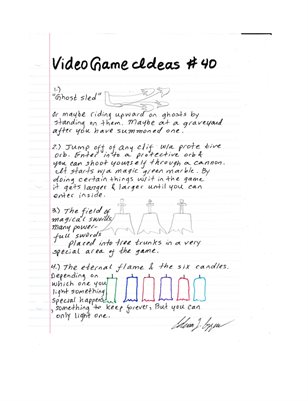 Video Game Ideas #40
1.)
"Ghost sled"
Or maybe riding upward on ghosts by
standing on them. Maybe at a graveyard
after you have summoned one.
2.) Jump off of any clif w/a protective
orb. Enter into a protective orb &
you can shoot yourself through a canoon.
It starts w/a magic green marble. By
doing certain things w/it in the game
it gets larger & larger until you can
enter inside.
3.) The field of
magical swords
many power-
full swords
placed into tree trunks in a very
special area of the game.
4.) The eternal flame & the six candles.
Depending on
which one you
light something
special happens,
something to keep forever; But you can
only light one.